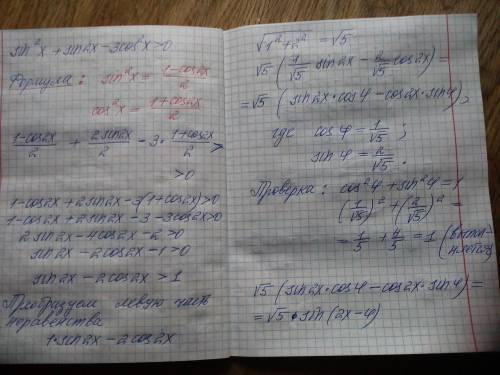 sin²x + sin2x - 3cos²x > 0
Формула: sin²x = (1-cos2x)/2
cos²x = (1+cos2x)/2
(1-cos2x)/2 + (2sin2x)/2 - 3·(1+cos2x)/2 >
>0
1-cos2x+2sin2x-3(1+cos2x)>0
1-cos2x+2sin2x-3-3cos2x>0
2sin2x-4cos2x-2>0
sin2x-2cos2x-1>0
sin2x-2cos2x>1
Преобразуем левую часть
неравенства
1·sin2x-2cos2x
√(1²+2²) = √5
√5(1/√5 sin2x - 2/√5 cos2x) =
=√5(sin2x·cosφ-cos2x·sinφ),
где cosφ = 1/√5 ;
sinφ = 2/√5 .
Проверка: cos²φ+sin²φ=1
(1/√5)² + (2/√5)² =
= 1/5 + 4/5 = 1 (выпол-
няется)
√5(sin2x·cosφ-cos2x·sinφ)=
=√5·sin(2x-φ)